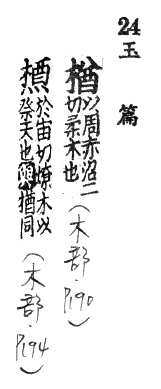 24 玉篇
楢 以周亦沼二切柔木也 (木部·P190)
槱 於宙切燎木以祭天也楢同 (木部·P194)